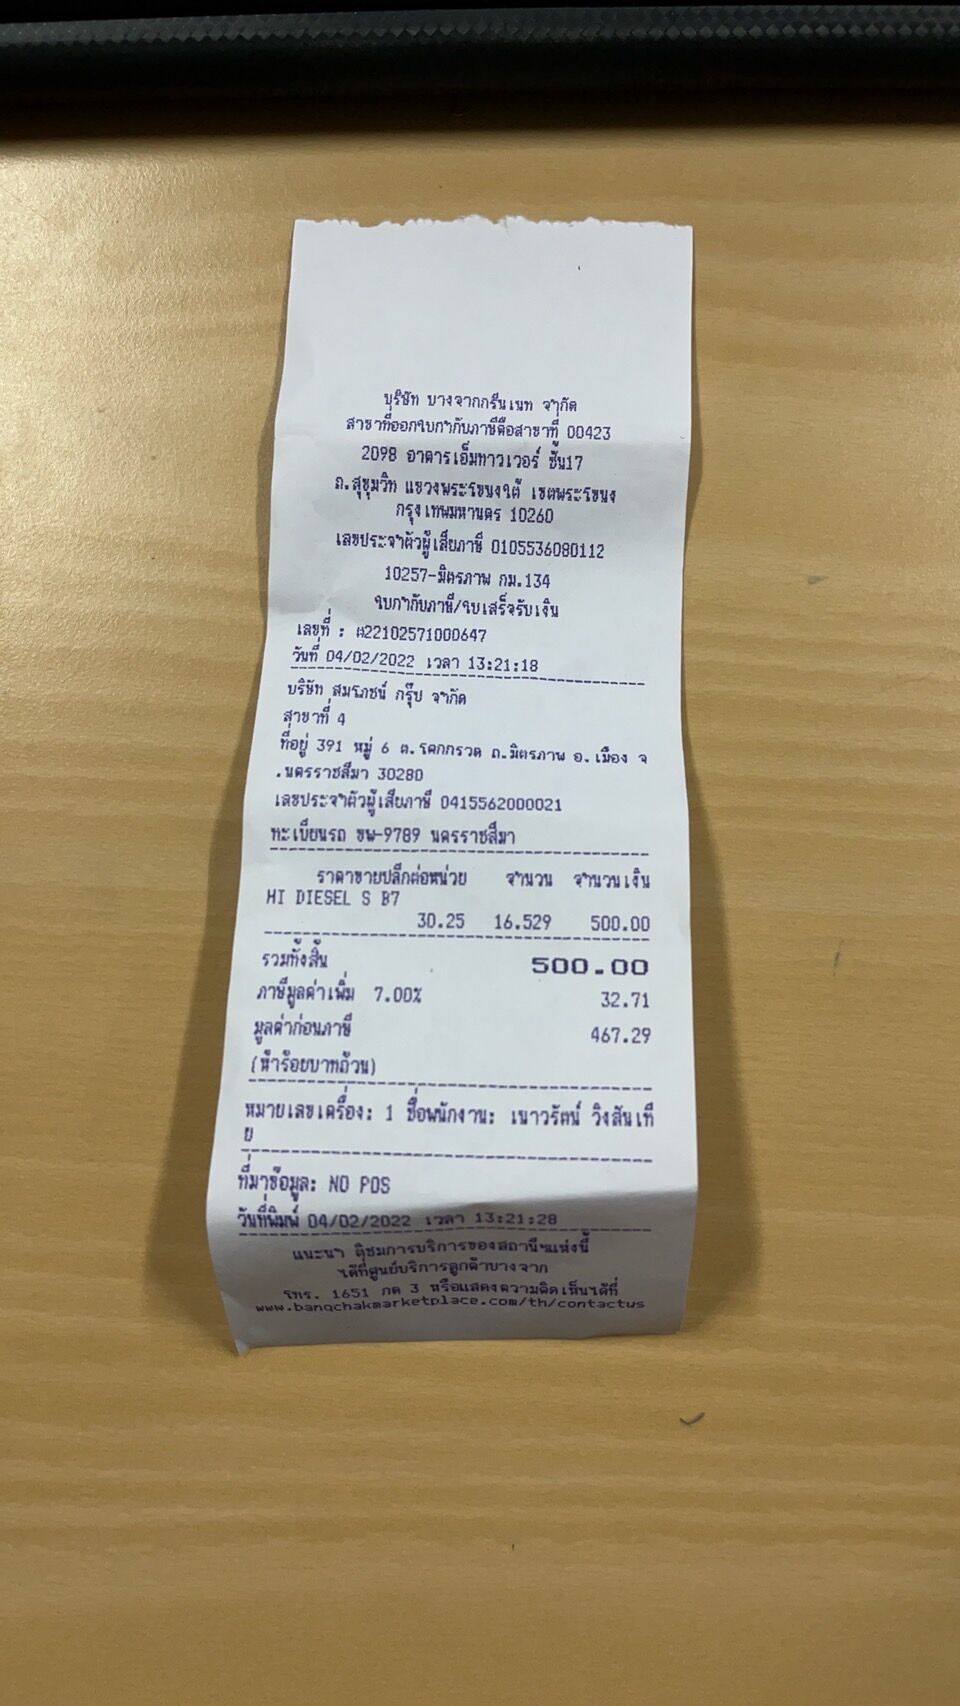 บริษัท บางจากกรีนเนท จำกัด
สาขาที่ออกใบกำกับภาษีคือสาขาที่ 00423
2098 อาคารเอ็มทาวเวอร์ ชั้น17
ถ.สุขุมวิท แขวงพระโขนงใต้ เขตพระโขนง
กรุงเทพมหานคร 10260
เลขประจำตัวผู้เสียภาษี 0105536080112
10257-มิตรภาพ กม.134
ใบกำกับภาษี/ใบเสร็จรับเงิน
เลขที่ : ต22102571000647
วันที่ 04/02/2022 เวลา 13:21:18
บริษัท สมโภชน์ กรุ๊ป จำกัด
สาขาที่ 4
ที่อยู่ 391 หมู่ 6 ต.โคกกรวด ถ.มิตรภาพ อ.เมือง จ
.นครราชสีมา 30280
เลขประจำตัวผู้เสียภาษี 0415562000021
ทะเบียนรถ ขพ-9789 นครราชสีมา
ราคาขายปลีกต่อหน่วย จำนวน จำนวนเงิน
HI DIESEL S B7
30.25 16.529 500.00
รวมทั้งสิ้น 500.00
ภาษีมูลค่าเพิ่ม 7.00% 32.71
มูลค่าก่อนภาษี 467.29
(ห้าร้อยบาทถ้วน)
หมายเลขเครื่อง: 1 ชื่อพนักงาน: เนาวรัตน์ วิงสันเที
ย
ที่มาข้อมูล: NO POS
วันที่พิมพ์ 04/02/2022 เวลา 13:21:28
แนะนำ ติชมการบริการของสถานีฯแห่งนี้
ได้ที่ศูนย์บริการลูกค้าบางจาก
โทร. 1651 กด 3 หรือแสดงความคิดเห็นได้ที่
www.bangchakmarketplace.com/th/contactus